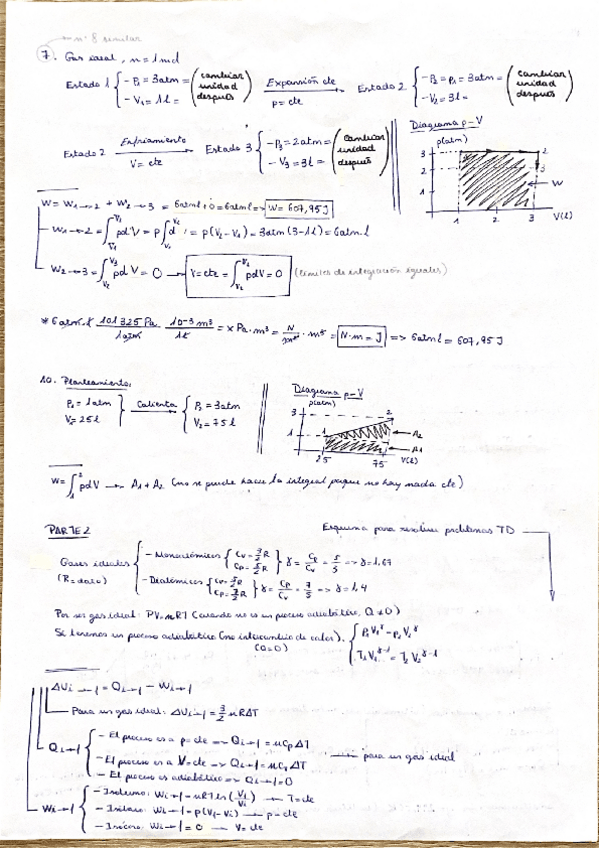 n° 8 similar
7. Gas ideal, n = 1 mol
Estado 1 { - P₁ = 3 atm = (cambiar unidad después) Expansión cte → p = cte Estado 2 { - P₂ = P₁ = 3 atm = (cambiar unidad después)
- V₁ = 1 l = - V₂ = 3 l =
Estado 2 Enfriamiento → V = cte Estado 3 { - P₃ = 2 atm = (cambiar unidad después)
- V₃ = 3 l =
Diagrama p-V
p(atm)
3
2
1
2
3
W
1 2 3 V(l)
W = W₁→₂ + W₂→₃ = 6 atm·l + 0 = 6 atm·l => W = 607,95 J
W₁→₂ = ∫ pdV = p∫ dV = p(V₂-V₁) = 3 atm (3-1 l) = 6 atm·l
W₂→₃ = ∫ pdV = 0 → V = cte = ∫ pdV = 0 (límites de integración iguales)
* 6 atm·l · 101325 Pa / 1 atm · 10⁻³ m³ / 1 l = x Pa·m³ = N/m² · m³ = N·m = J => 6 atm l = 607,95 J
10. Planteamiento:
P₁ = 1 atm } Calienta → { P₂ = 3 atm
V₁ = 25 l V₂ = 75 l
Diagrama p-V
p(atm)
3
2
1
1
A2
A1
25 75 V(l)
W = ∫₁² pdV → A1 + A2 (no se puede hacer la integral porque no hay nada cte)
PARTE 2
Esquema para resolver problemas TD
Gases ideales { - Monoatómicos { Cv = 3/2 R Cp = 5/2 R } γ = Cp/Cv = 5/3 => γ = 1,67
(R = dato) - Diatómicos { Cv = 5/2 R Cp = 7/2 R } γ = Cp/Cv = 7/5 => γ = 1,4
Por ser gas ideal: PV = nRT (cuando no es un proceso adiabático, Q ≠ 0)
Si tenemos un proceso adiabático (no intercambio de calor). { P₁V₁^γ = P₂V₂^γ
(Q=0) T₁V₁^γ-1 = T₂V₂^γ-1
ΔUi→f = Qi→f - Wi→f
Para un gas ideal: ΔUi→f = 3/2 nRΔT
Qi→f { - El proceso es a p = cte => Qi→f = nCpΔT
- El proceso es a V = cte => Qi→f = nCvΔT → para un gas ideal
- El proceso es adiabático => Qi→f = 0
Wi→f { - Isotermo: Wi→f = nRT ln(Vf/Vi) → T = cte
- Isóbaro: Wi→f = p(Vf-Vi) → p = cte
- Isócoro: Wi→f = 0 → V = cte